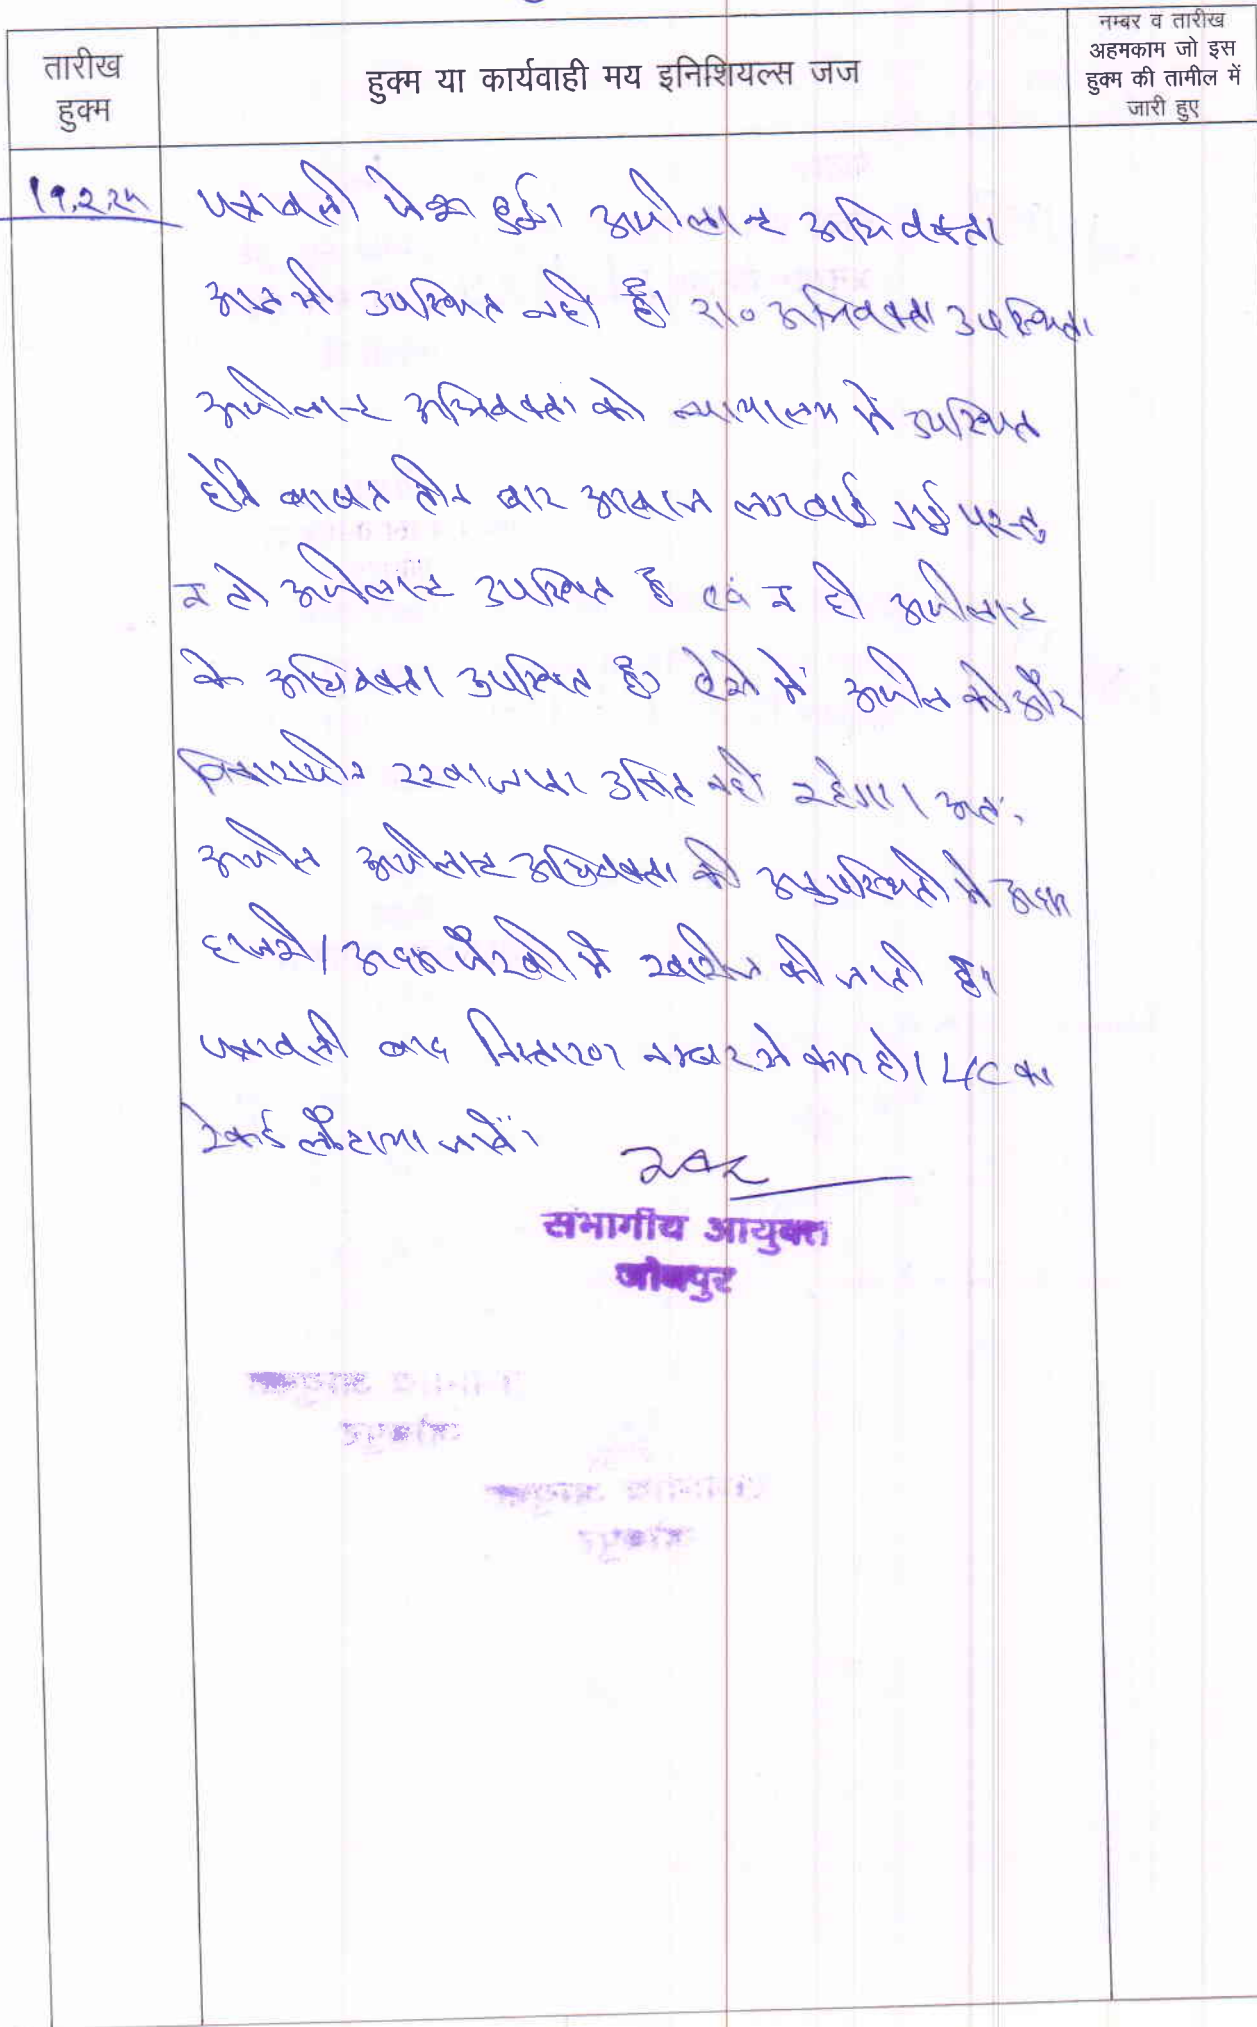 तारीख
हुक्म
हुक्म या कार्यवाही मय इनिशियल्स जज
नम्बर व तारीख
अहमकाम जो इस
हुक्म की तामील में
जारी हुए
19.2.25
पत्रावली पेश हुई। अपीलान्ट अधिवक्ता
आज भी उपस्थित नहीं है। रा० अधिवक्ता उपस्थित।
अपीलान्ट अधिवक्ता को न्यायालय में उपस्थित
होने बाबत तीन बार आवाज लगवाई गई परन्तु
न तो अपीलान्ट उपस्थित है एवं न ही अपीलान्ट
के अधिवक्ता उपस्थित है। ऐसे में अपील को और
विचाराधीन रखा जाना उचित नहीं रहेगा। अतः
अपील अपीलान्ट अधिवक्ता की अनुपस्थिती में अदम
हाजरी/अदम पैरवी में खारीज की जाती है।
पत्रावली बाद निस्तारण नम्बर से कम हो। LC का
रेकर्ड लौटाया जावें।
संभागीय आयुक्त
जोधपुर